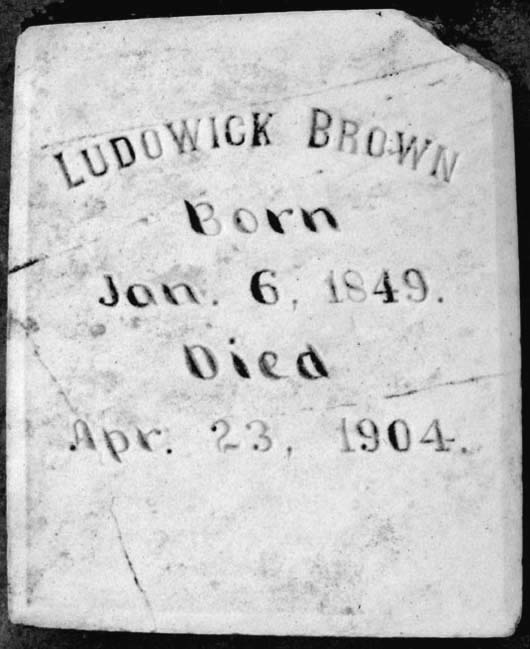 LUDOWICK BROWN
Born
Jan. 6, 1849.
Died
Apr. 23, 1904.